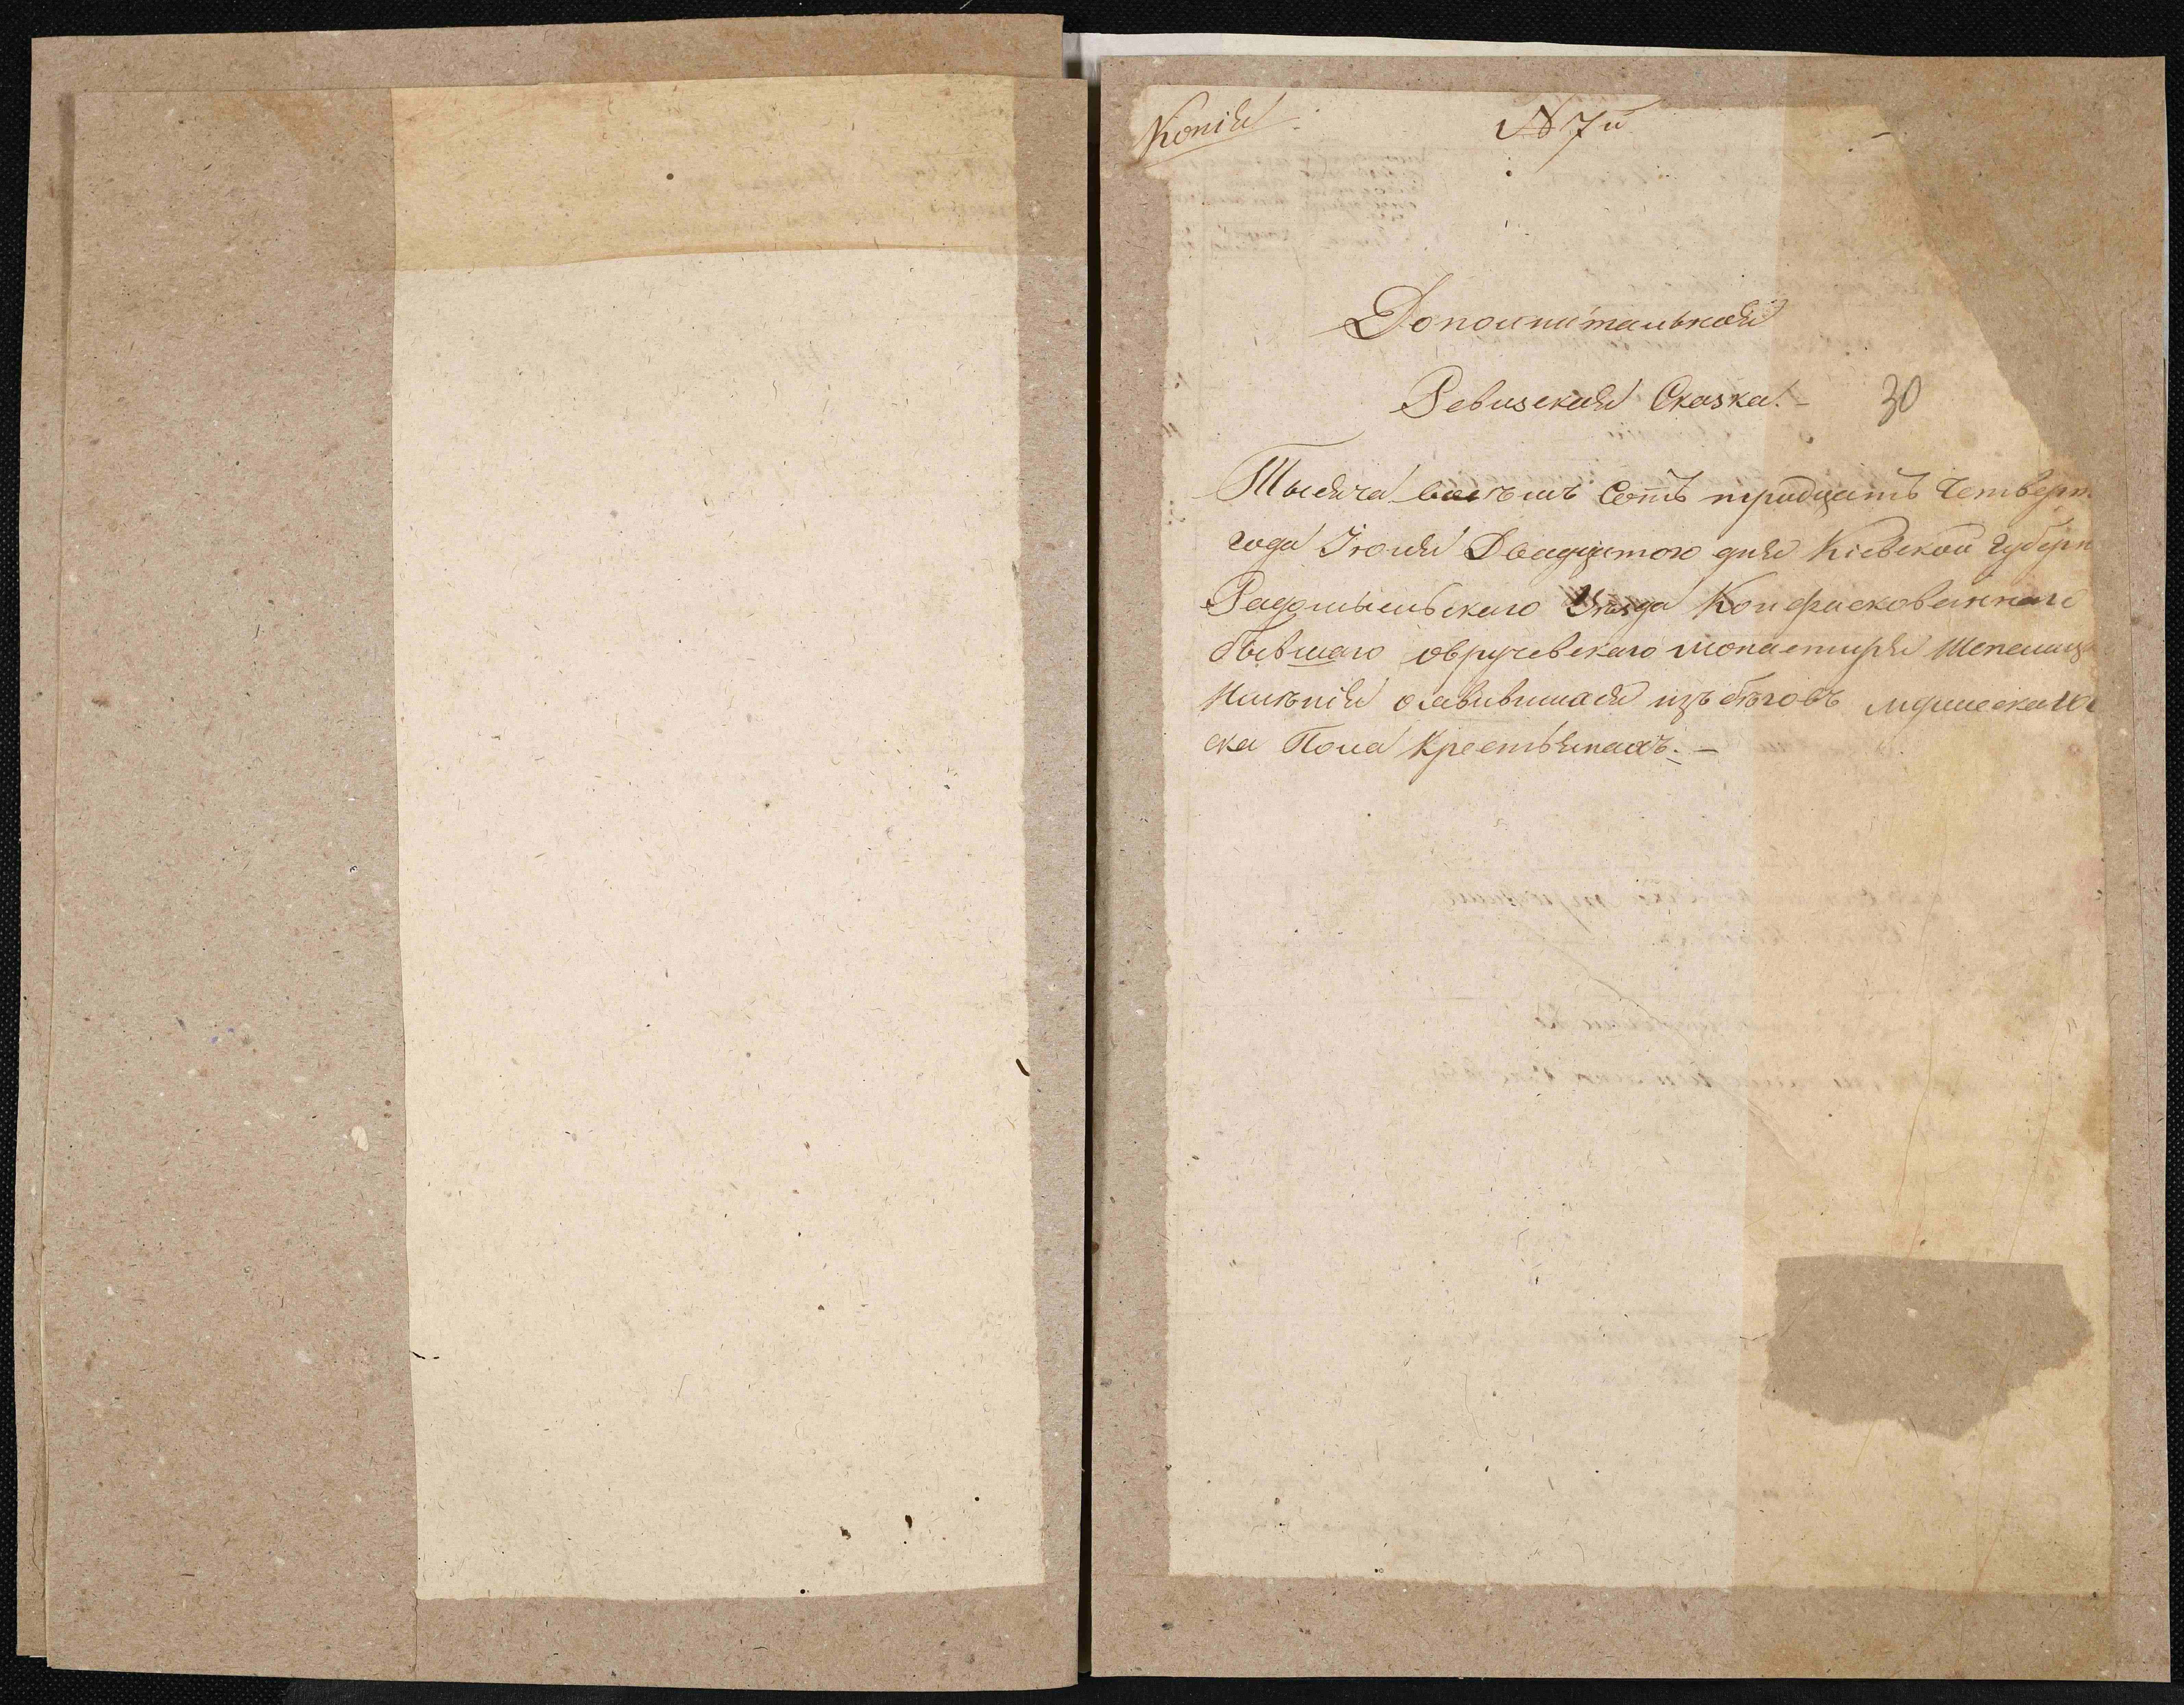 Копія
N 7й
Дополнительная
Ревизская Сказка.
30
Тысяча восѣмъ Сотъ тридцать Четверт
года Іюля Двадцатого дня Кіевской Губерн
Радомысльскаго Уѣзда Конфискованнаго
бывшаго овручевскаго монастиря Шепелиц
Имѣнія о явившихся изъ бѣговъ
ска Пола Крестьянахъ.